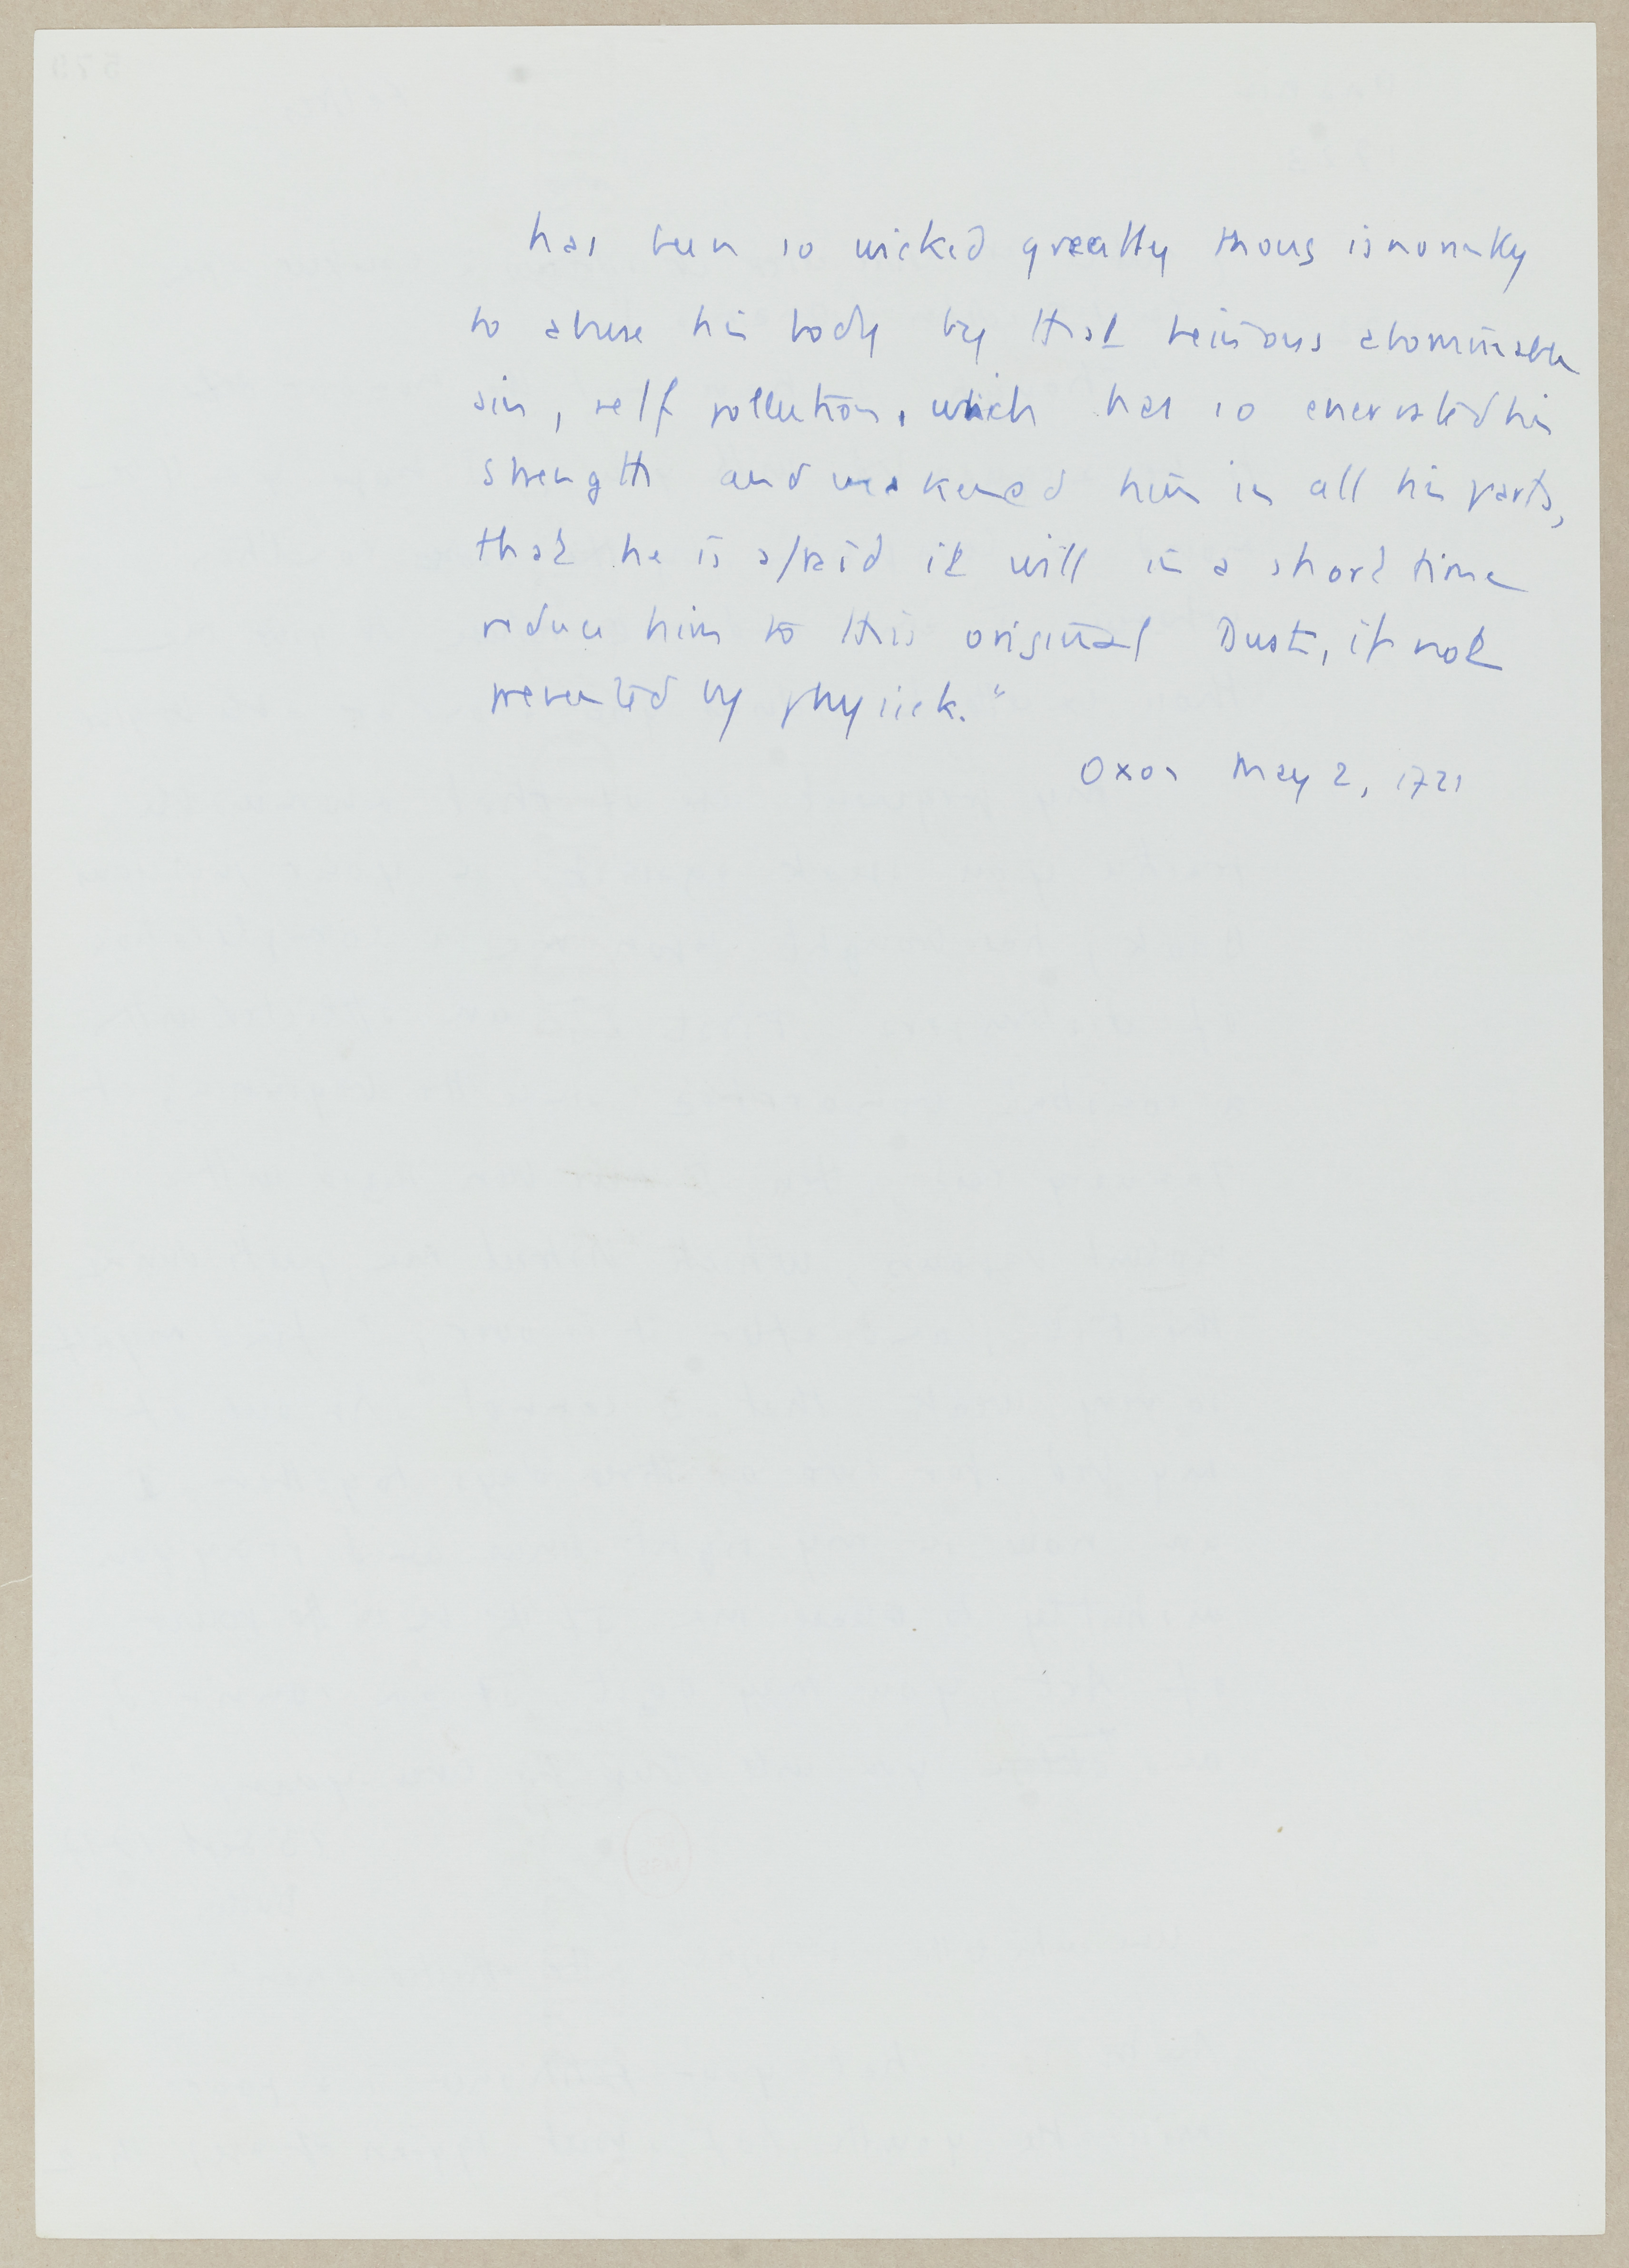 has been so wicked greatly thoug ignorantly
to abuse his body by that heinous abominable
sin, self pollution, which has so enervated his
strength and weakened him in all his parts,
that he is afraid it will in a short time
reduce him to this original Dust, if not
prevented by physick."
Oxon May 2, 1721